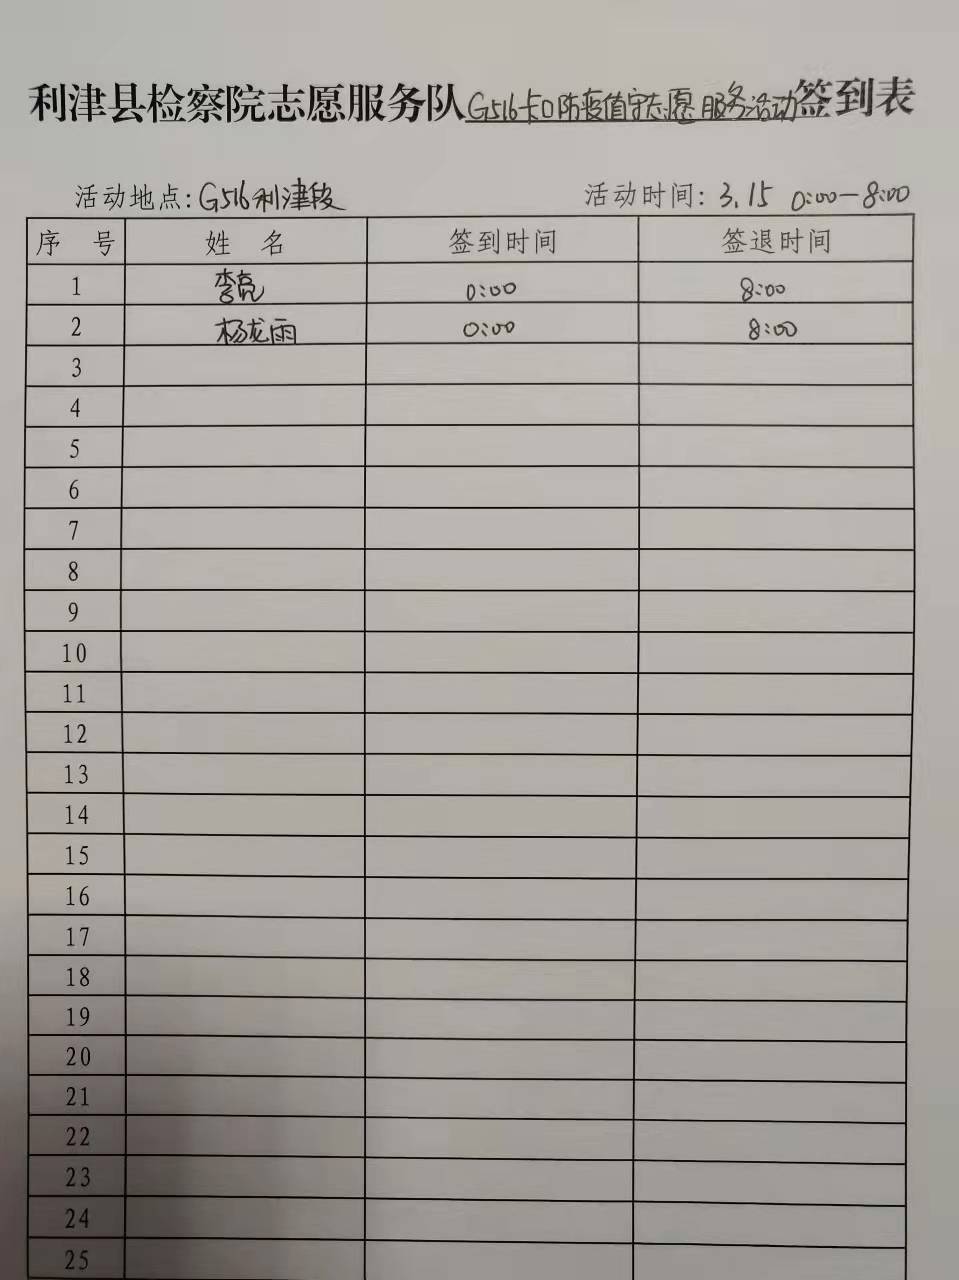 利津县检察院志愿服务队G516卡口防疫值守志愿服务活动签到表
活动地点:G516利津段 活动时间: 3.15 0:00-8:00
序 号 姓 名 签到时间 签退时间
1 李亮 0:00 8:00
2 杨龙雨 0:00 8:00
3
4
5
6
7
8
9
10
11
12
13
14
15
16
17
18
19
20
21
22
23
24
25